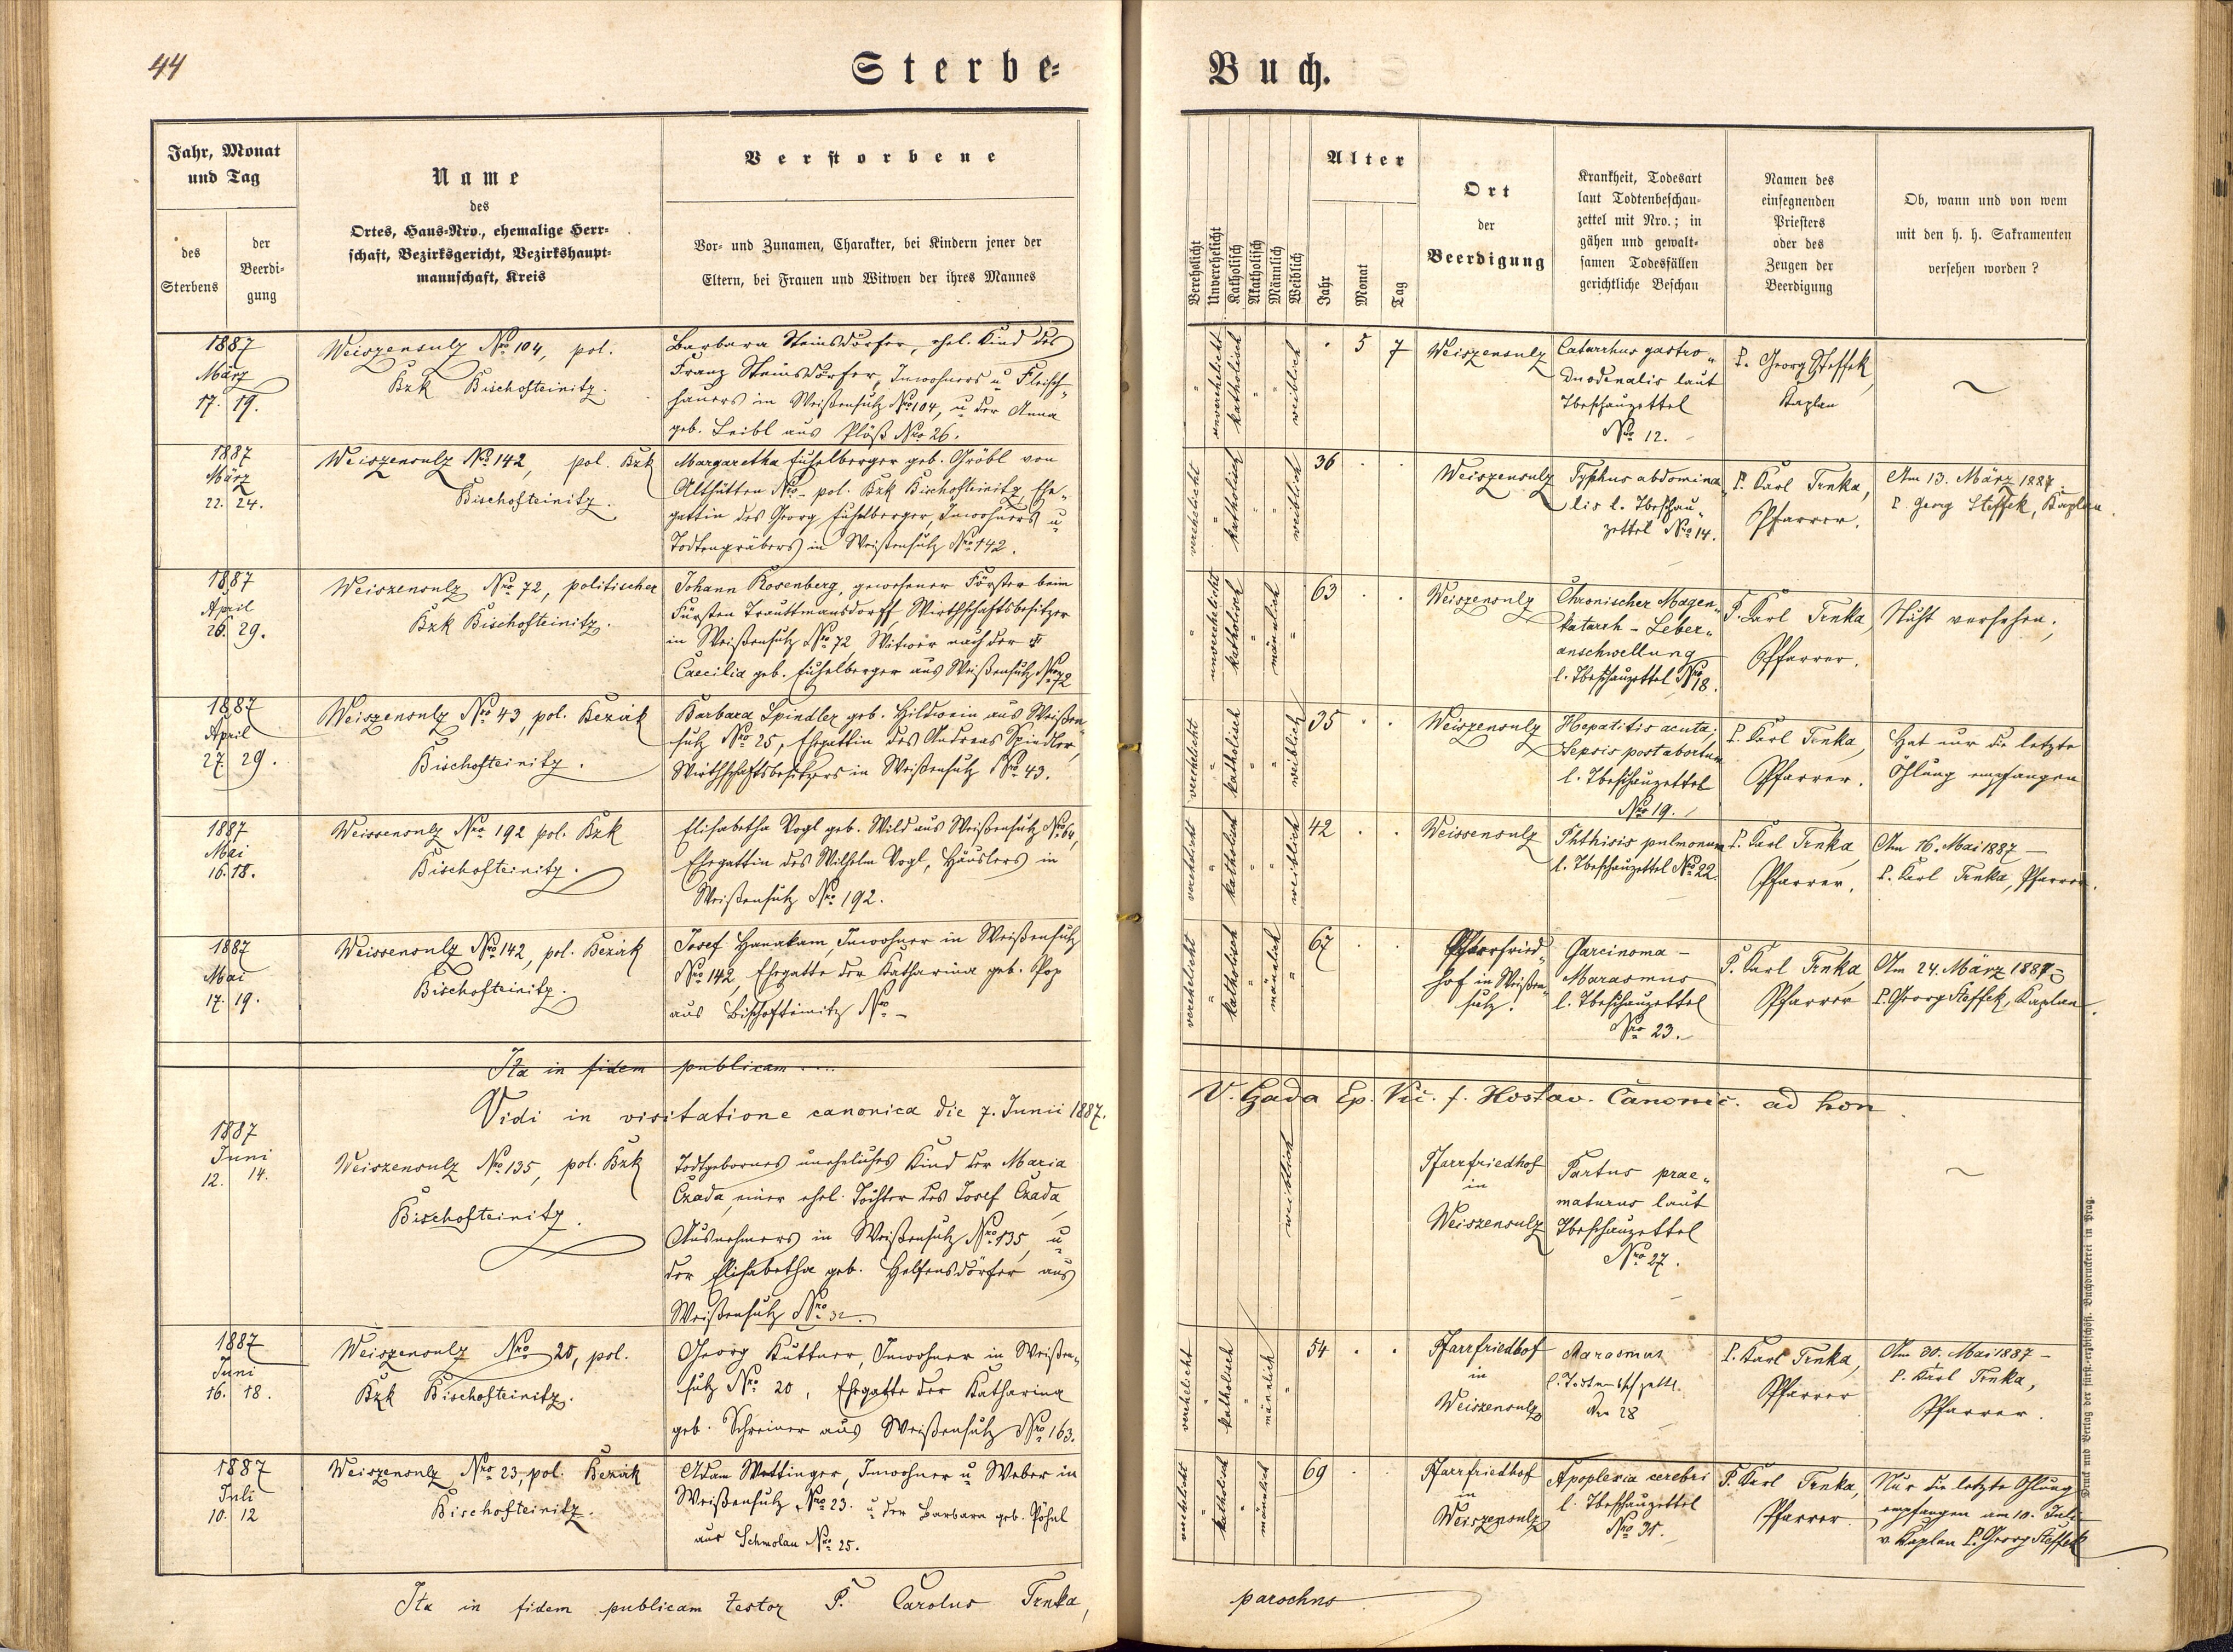 44
Sterbe-
Buch.
Jahr, Monat
und Tag
des
Sterbens
der
Beerdi-
gung
Name
des
Ortes, Haus-Nro., ehemalige Herr-
schaft, Bezirksgericht, Bezirkshaupt-
mannschaft, Kreis
Verstorbene
Vor- und Zunamen, Charakter, bei Kindern jener der
Eltern, bei Frauen und Witwen der ihres Mannes
Verehelicht
Unverehelicht
Katholisch
Akatholisch
Männlich
Weiblich
Alter
Jahr
Monat
Tag
Ort
der
Beerdigung
Krankheit, Todesart
laut Todtenbeschau-
zettel mit Nro.; in
gähen und gewalt-
samen Todesfällen
gerichtliche Beschau
Namen des
einsegnenden
Priesters
oder des
Zeugen der
Beerdigung
Ob, wann und von wem
mit den h. h. Sakramenten
versehen worden?
1887
März
17. 19.
Weiszensulz Nro 104, pol.
Bzk Bischofteinitz.
Barbara Steinsdörfer, ehel. Kind des
Franz Steinsdörfer, Inwohners u Fleisch„
hauers in Weißensulz Nro 104, u der Anna
geb. Leibl aus Plöß Nro 26.
unverehelicht
katholisch
weiblich
5 7
Weiszensulz
Catarrhus gastro„
duodenalis laut
Tbeschauzettel
Nro 12.
P. Georg Steffek,
Kaplan
1887
März
22. 24.
Weiszensulz Nro 142, pol. Bzk
Bischofteinitz.
Margaretha Euhelberger geb. Gröbl von
Althütten Nro - pol. Bzk Bischofteinitz, Ehe„
gattin des Georg Euhelberger, Inwohners u
Todtengräbers in Weißensulz Nro 142.
verehelicht
katholisch
weiblich
36
Weiszensulz
Typhus abdomina„
lis l. Tbeschau„
zettel Nro 14.
P. Karl Trnka,
Pfarrer.
Am 13. März 1887.
P. Georg Steffek, Kaplan.
1887
April
26. 29.
Weiszensulz Nro 72, politischer
Bzk Bischofteinitz.
Johann Rosenberg, gewesener Förster beim
Fürsten Trauttmansdorff, Wirthschaftsbesitzer
in Weißensulz Nro 72, Witwer nach der
Caecilia geb. Euhelberger aus Weißensulz Nro 72
unverehelicht
katholisch
männlich
63
Weiszensulz
Chronischer Magen„
katarrh - Leber„
anschwellung
l. Tbeschauzettel Nro 18.
P. Karl Trnka,
Pfarrer.
Nicht versehen.
1887
April
27. 29.
Weiszensulz Nro 43, pol. Bezirk
Bischofteinitz.
Barbara Spindler geb. Hildwein aus Weißen„
sulz Nro 25, Ehegattin des Andreas Spindler,
Wirthschaftsbesitzers in Weißensulz Nro 43.
verehelicht
katholisch
weiblich
35
Weiszensulz
Hepatitis acuta;
Sepsis post abortum
l. Tbeschauzettel
Nro 19.
P. Karl Trnka,
Pfarrer.
Hat nur die letzte
Öhlung empfangen
1887
Mai
16. 18.
Weissensulz Nro 192 pol. Bzk
Bischofteinitz.
Elisabetha Vogl geb. Wild aus Weißensulz Nro 64,
Ehegattin des Wilhelm Vogl, Häuslers in
Weißensulz Nro 192.
verehelicht
katholisch
weiblich
42
Weissensulz
Phthisis pulmonum
l. Tbeschauzettel Nro 22.
P. Karl Trnka,
Pfarrer.
Am 16. Mai 1887 -
P. Karl Trnka, Pfarrer.
1887
Mai
17. 19.
Weissensulz Nro 142, pol. Bezirk
Bischofteinitz.
Josef Hanakam, Inwohner in Weißensulz
Nro 142, Ehegatte der Katharina geb. Pop
aus Bischofteinitz Nro -
verehelicht
katholisch
männlich
67
Pfarrfried„
hof in Weißen„
sulz.
Carcinoma -
Marasmus
l. Tbeschauzettel
Nro 23.
P. Karl Trnka,
Pfarrer
Am 24. März 1887
P. Georg Steffek, Kaplan.
Ita in fidem publicam ....
Vidi in visitatione canonica die 7. Junii 1887.
V. Hada Ep. Vic. f. Hostav. Canonic. ad hon.
1887
Juni
12. 14.
Weiszensulz Nro 135, pol. Bzk
Bischofteinitz.
Todtgebornes uneheliches Kind der Maria
Czada, einer ehel. Tochter des Josef Czada,
Ausnehmers in Weißensulz Nro 135, u
der Elisabetha geb. Helfensdörfer aus
Weißensulz Nro 32.
weiblich
Pfarrfriedhof
in
Weiszensulz
Partus prae„
maturus laut
Tbeschauzettel
Nro 27.
1887
Juni
16. 18.
Weiszensulz Nro 20, pol.
Bzk Bischofteinitz.
Georg Kuttner, Inwohner in Weißen„
sulz Nro 20, Ehegatte der Katharina
geb. Schreiner aus Weißensulz Nro 163.
verehelicht
katholisch
männlich
54
Pfarrfriedhof
in
Weiszensulz
Marasmus
Nro 28
P. Karl Trnka,
Pfarrer
Am 30. Mai 1887 -
P. Karl Trnka,
Pfarrer.
1887
Juli
10. 12
Weiszensulz Nro 23, pol. Bezirk
Bischofteinitz.
Adam Wottinger, Inwohner u Weber in
Weißensulz Nro 23. u der Barbara geb. Pöhnl
aus Schmolau Nro 25.
verehelicht
katholisch
männlich
69
Pfarrfriedhof
in
Weiszensulz
Apoplexia cerebri
l. Tbeschauzettel
Nro 31.
P. Karl Trnka,
Pfarrer
Nur die letzte Öhlung
empfangen am 10. Juli
v. Kaplan P. Georg Steffek
Ita in fidem publicam testor P. Carolus Trnka,
parochus
Druck und Verlag der fürst-erzbischöfl. Buchdruckerei in Prag.